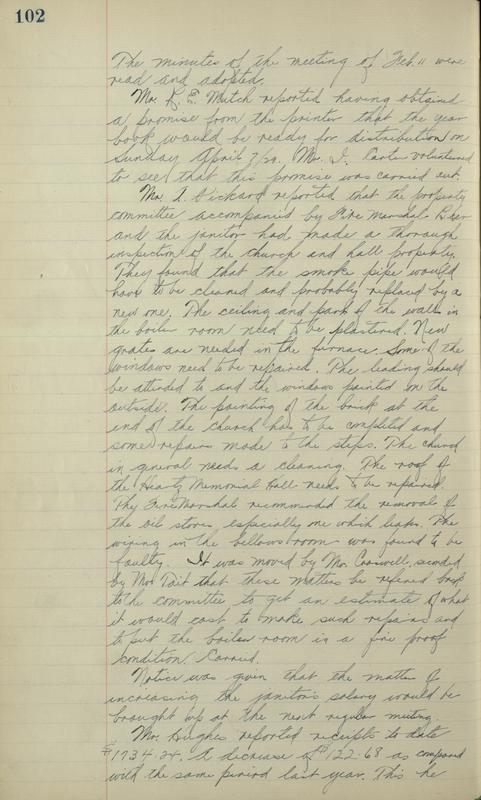 102
The minutes of the meeting of Feb. 11 were
read and adopted.
Mr. R. E. Mutch reported having obtained
a promise from the printer that the year
book would be ready for distribution on
Sunday April 7/29. Mr. J. Carter volunteered
to see that this promise was carried out.
Mr. A. Pickard reported that the property
committee accompanied by Fire Marshal
and the janitor had made a thorough
inspection of the church and hall property.
They found that the smoke pipe would
have to be cleaned and probably replaced by a
new one. The ceiling and part of the walls in
the boiler room need to be plastered. New
grates are needed in the furnace. Some of the
windows need to be repaired. The leading should
be attended to and the windows painted on the
outside. The painting of the brick at the
end of the church has to be completed and
some repairs made to the steps. The church
in general needs a cleaning. The roof of
the Heartz Memorial Hall needs to be repaired.
The Fire Marshal recommended the removal of
the oil stoves, especially one which leaks. The
wiring in the bellows room was found to be
faulty. It was moved by Mr. seconded
by Mr. Tait that these matters be referred back
to the committee to get an estimate of what
it would cost to make such repairs and
to put the boiler room in a fire proof
condition. Carried.
Notice was given that the matter of
increasing the janitor's salary would be
brought up at the next regular meeting.
Mr. Hughes reported receipts to date
$1734.24. A decrease of $122.68 as compared
with the same period last year. This he